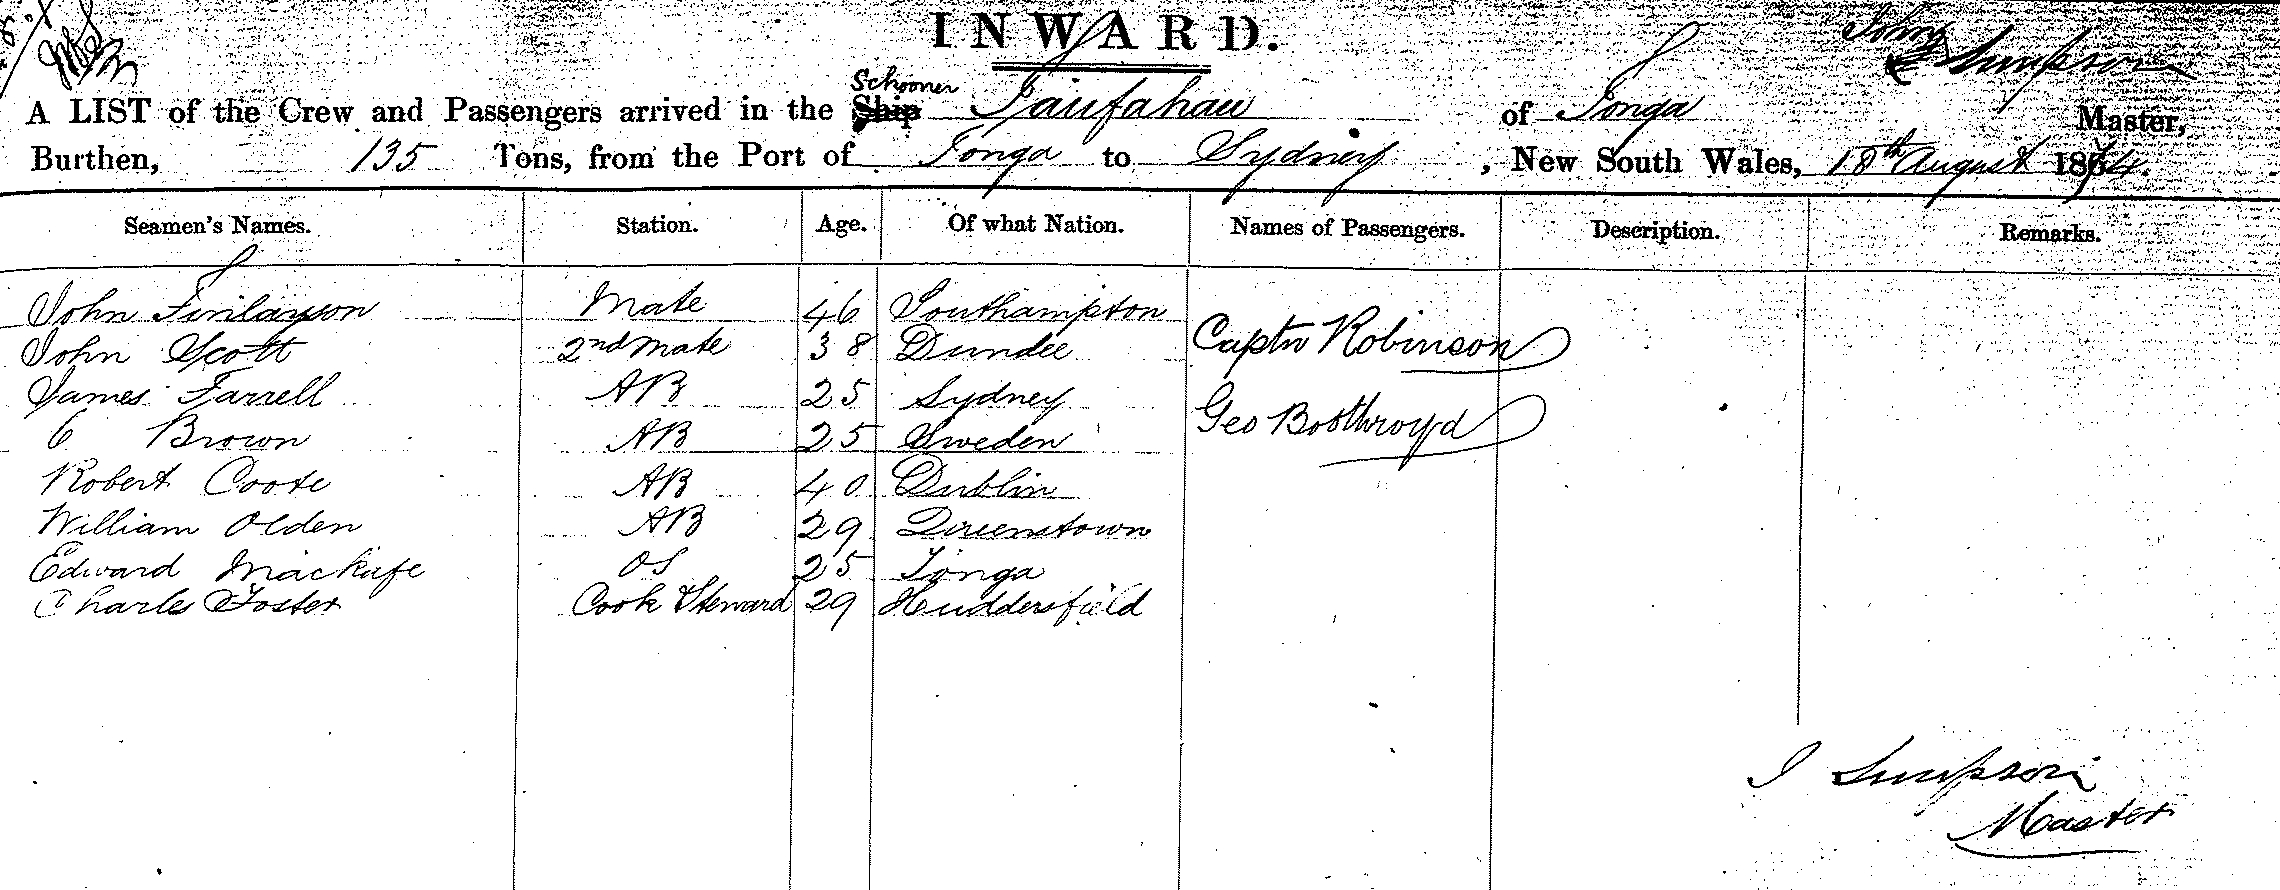 INWARD.
John Simpson
A LIST of the Crew and Passengers arrived in the Ship Schooner Taufahau of Tonga Master,
Burthen, 135 Tons, from the Port of Tonga to Sydney, New South Wales, 18th August 1874.
Seamen's Names. Station. Age. Of what Nation. Names of Passengers. Description. Remarks.
John Finlayson Mate 46 Southampton
Captn Robinson
John Scott 2nd Mate 38 Dundee
James Farrell AB 25 Sydney
Geo Boothroyd
C Brown AB 25 Sweden
Robert Coote AB 40 Dublin
William Olden AB 29 Queenstown
Edward Mackife OS 25 Tonga
Charles Foster Cook Steward 29 Huddersfield
J Simpson
Master